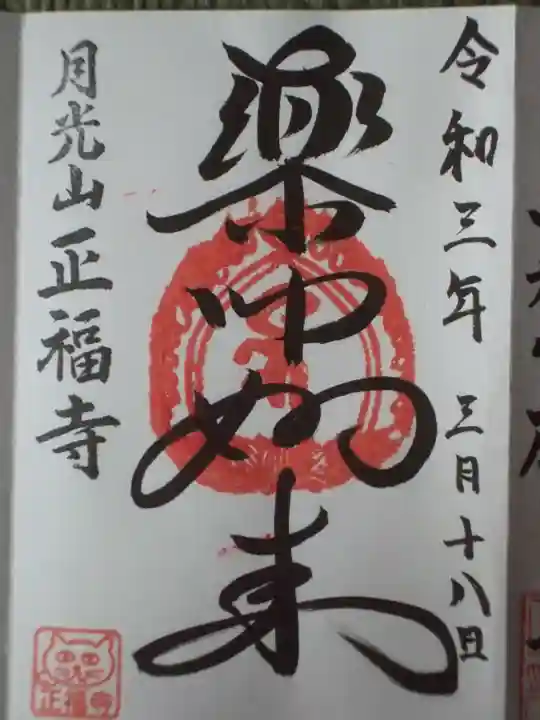 令和三年 三月十八日
薬師如来
月光山正福寺
正福寺